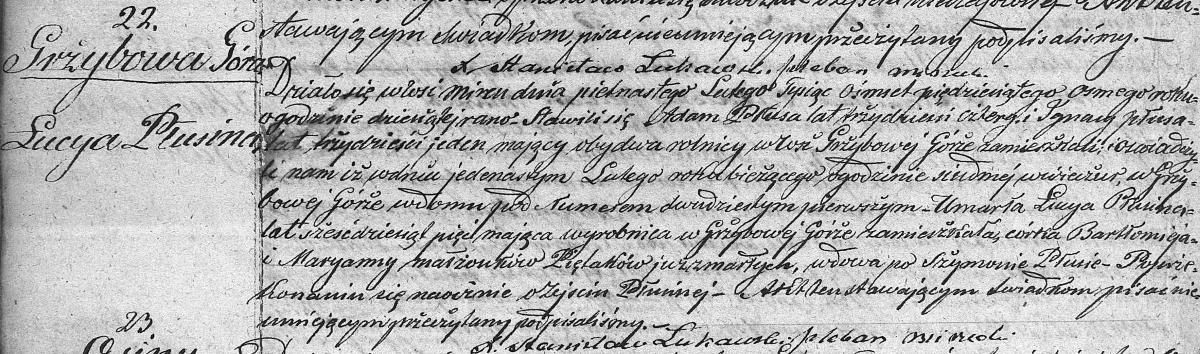 22.
Grzybowa Góra
Łucya Płusina
stawającym świadkom, pisać nieumiejącym przeczytany podpisaliśmy. —
X. Stanisław Łukawski. pleban
Działo się wewsi Mircu dnia piętnastego Lutego Tysiąc Ośmset pięćdziesiątego osmego roku
ogodzinie dziesiątej rano. Stawili się Adam Płusa lat trzydzieści cztery, i Ignacy Płusa
lat trzydzieści jeden mający obydwa rolnicy wewsi Grzybowej Górze zamieszkali, i oświadczy
li nam iż wdniu jedenastym Lutego roku bieżącego, ogodzinie siudmej wwieczur, w Grzy-
bowej Górze wdomu pod Numerem dwadziestym pierwszym – Umarła Łucya Płusina
lat sześćdziesiąt pięć mająca wyrobnica w Grzybowej Górze zamieszkała, corka Bartłomieja
i Maryanny małżonków Piętaków juzzmarłych, wdowa po Szymonie Płusie – Poprze
konaniu się naocznie o Zejściu Płusinej – Akt ten stawającym świadkom, pisac nie
umiejącym przeczytany podpisaliśmy. —
23
X. Stanisław Łukawski. pleban